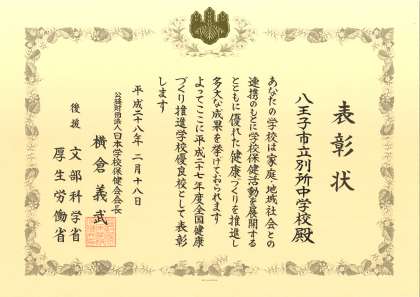 表彰状
八王子市立別所中学校殿
あなたの学校は家庭・地域社会との
連携のもとに学校保健活動を展開する
とともに優れた健康づくりを推進し
多大な成果を挙げておられます
よってここに平成二十七年度全国健康
づくり推進学校優良校として表彰
します
平成二十八年二月十八日
公益財団法人日本学校保健会会長
横倉義武
後援 文部科学省
厚生労働省